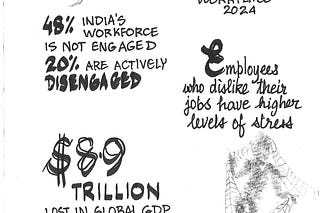 48% INDIA'S
WORKFORCE
IS NOT ENGAGED
20% ARE ACTIVELY
DISENGAGED
2024
Employees
who dislike their
jobs have higher
levels of stress
$8.9
TRILLION
LOST IN GLOBAL GDP